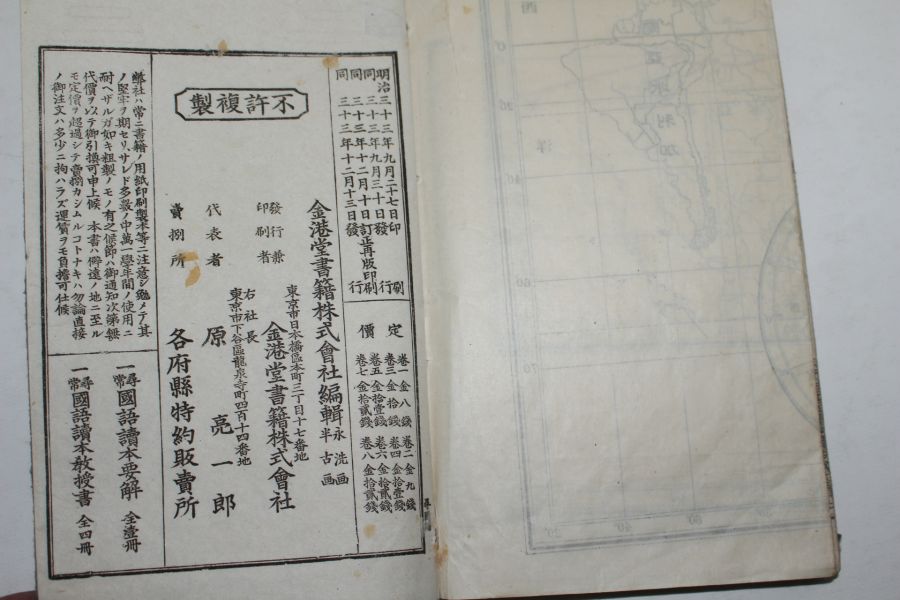 明治三十三年九月二十七日印刷
同三十三年九月三十日發行
同三十三年十二月十日訂正再版印刷
同三十三年十二月十三日發行
定價
卷一金八錢 卷二金九錢
卷三金拾錢 卷四金拾壹錢
卷五金拾壹錢 卷六金拾貳錢
卷七金拾貳錢 卷八金拾貳錢
不許複製
金港堂書籍株式會社編輯
永洗画
半古画
東京市日本橋區本町三丁目十七番地
發行兼印刷者 金港堂書籍株式會社
右社長
東京市下谷區龍泉寺町四百十四番地
代表者 原亮一郎
賣捌所 各府縣特約販賣所
弊社ハ常ニ書籍ノ用紙印刷製本等ニ注意シ勉メテ其
ノ堅牢ヲ期セリ、サレド多數ノ中萬一學年間ノ使用ニ
耐ヘザルガ如キ粗製ノモノ有之候節ハ御通知次第無
代價ヲ以テ御引換可申上候、本書ハ僻遠ノ地ニ至ル
モ定價ヲ超過シテ賣捌カシムルコトナキハ勿論直接
ノ御注文ハ多少ニ拘ハラズ運賃ヲモ自擔可仕候
一尋常國語讀本要解 全壹册
一尋常國語讀本教授書 全四册